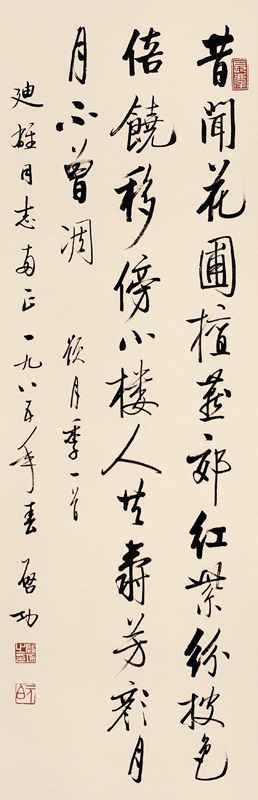 昔聞花圃擅燕郊紅紫紛披色
倍饒移傍小樓人共壽芳顏月
月不曾凋 題月季一首
廸雄同志正 一九八五年春 啓功